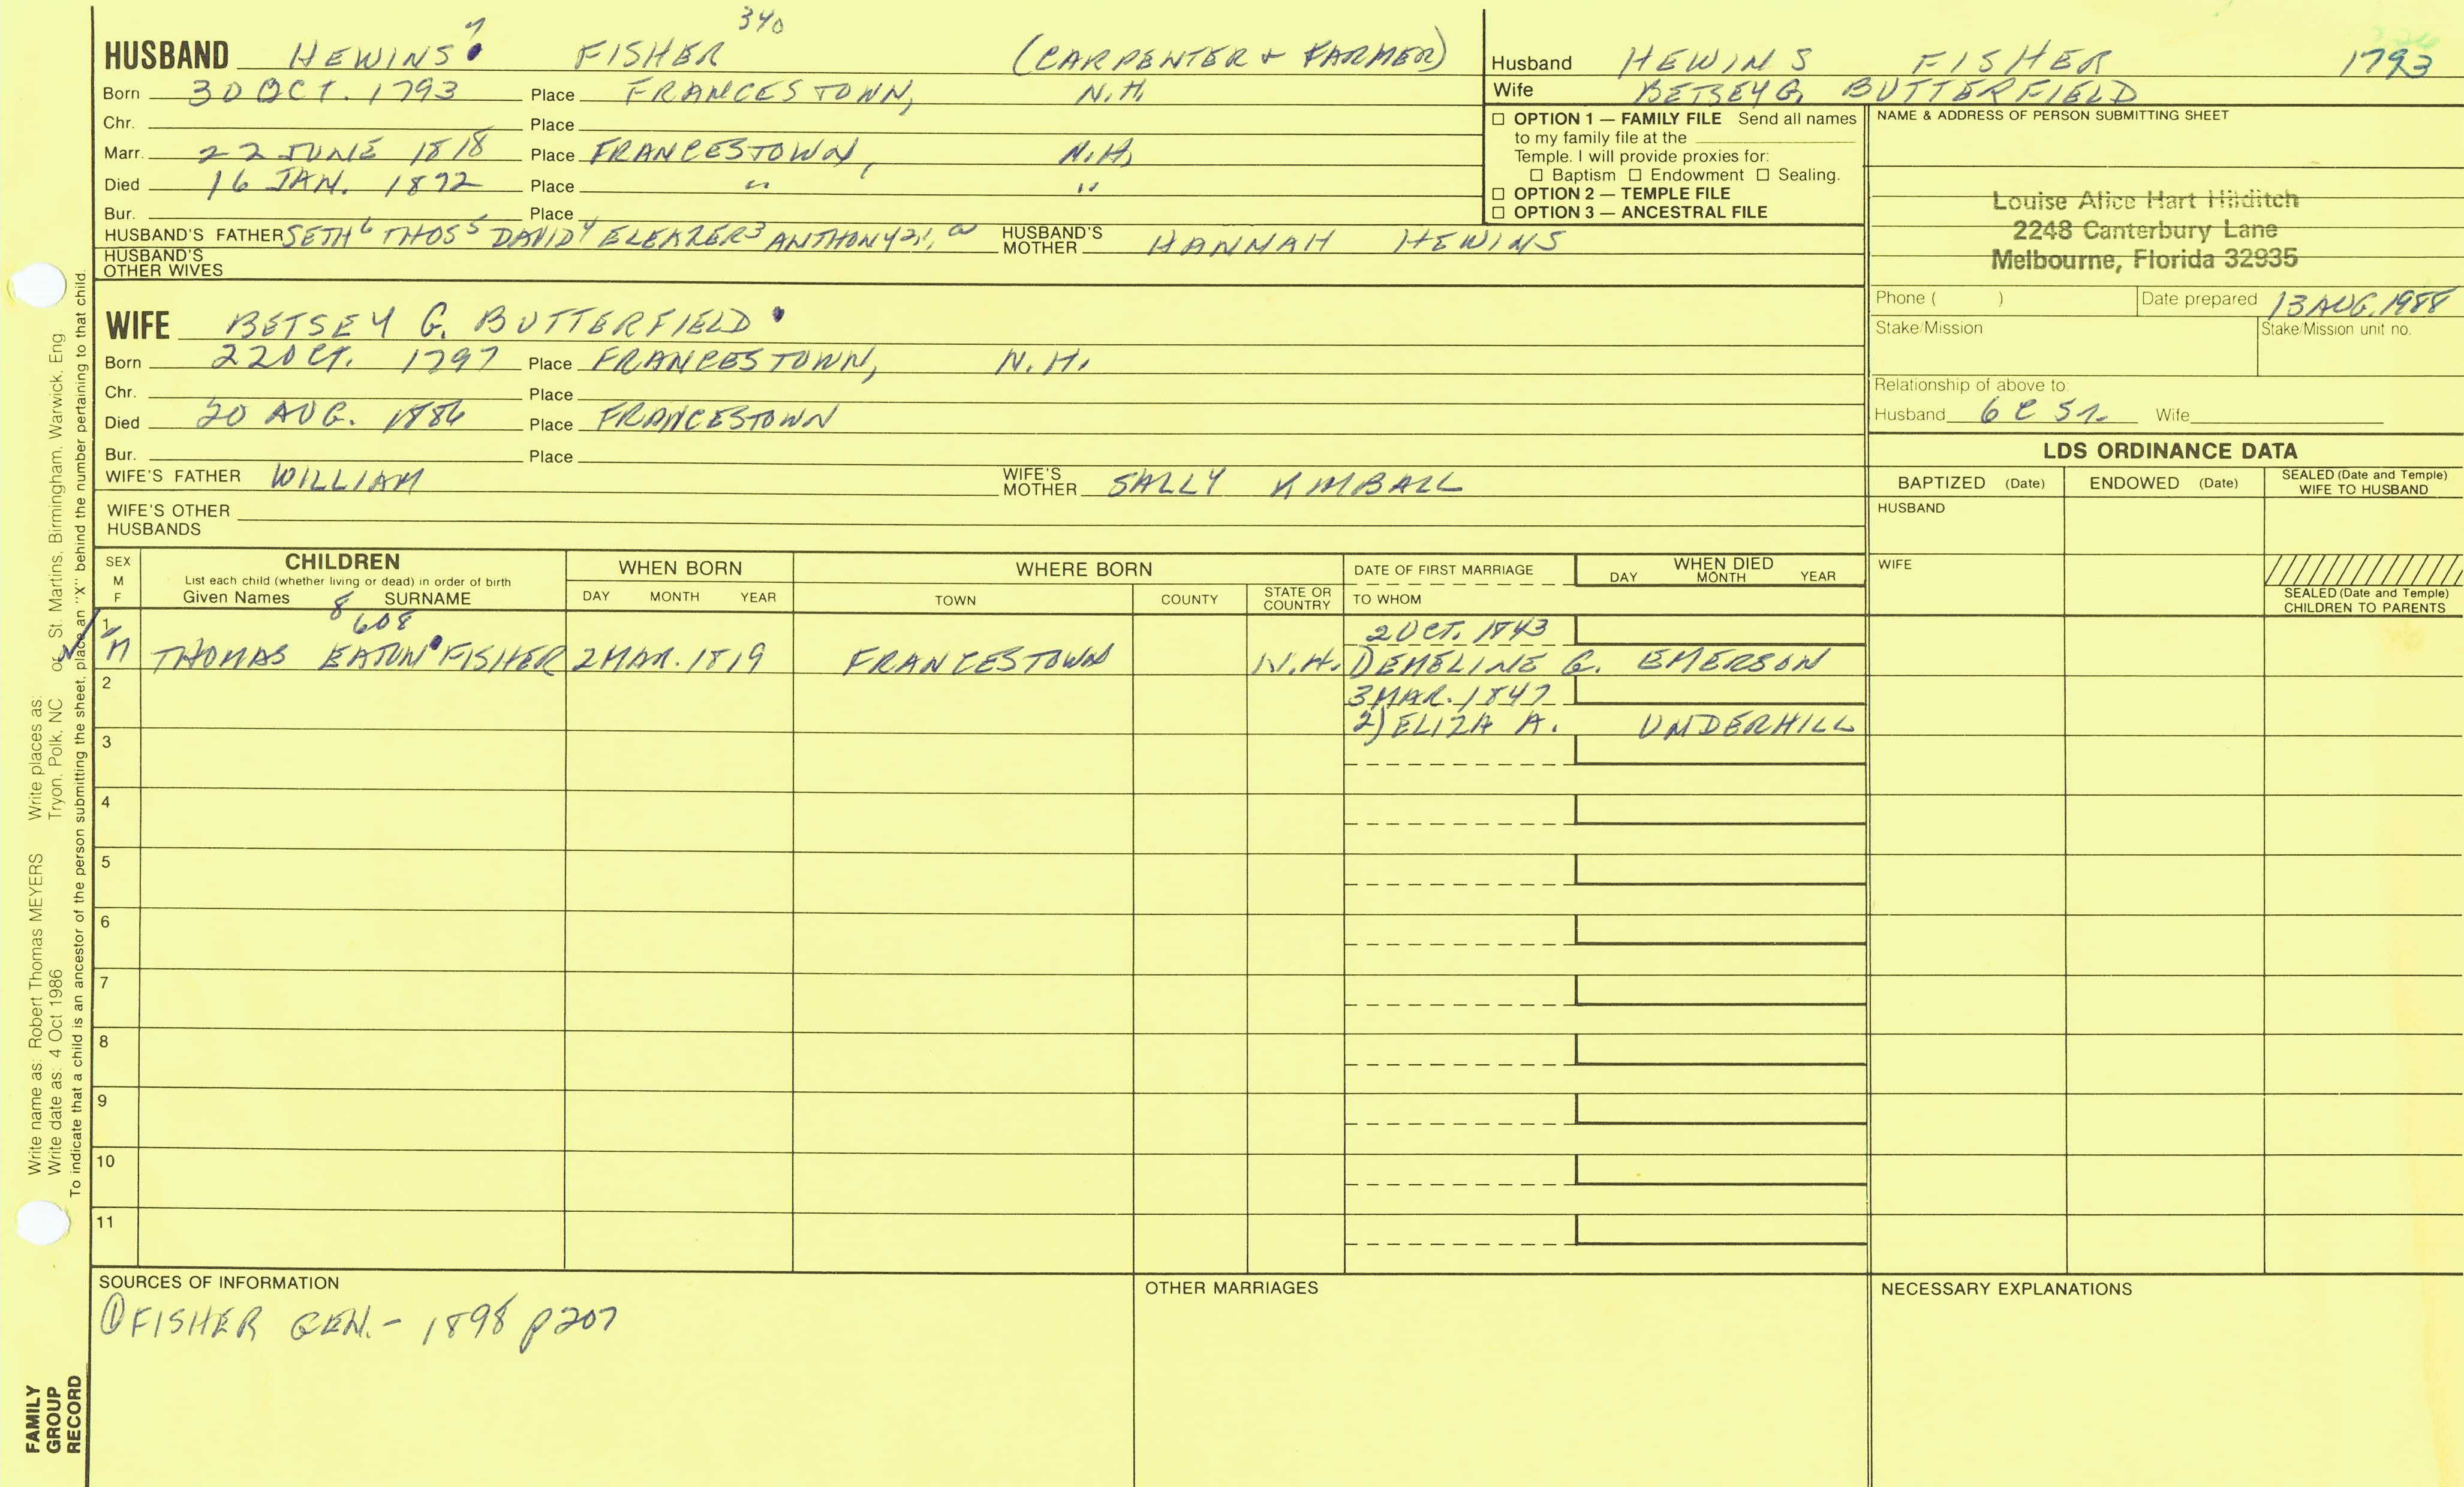 HUSBAND HEWINS 7 FISHER 340 (CARPENTER + FARMER)
Born 30 OCT. 1793 Place FRANCESTOWN, N.H.
Chr. Place
Marr. 22 JUNE 1818 Place FRANCESTOWN, N.H.
Died 16 JAN. 1872 Place " "
Bur. Place
HUSBAND'S FATHER SETH 6 THOS 5 DAVID 4 ELEAZER 3 ANTHONY 2,1, HUSBAND'S MOTHER HANNAH HEWINS
HUSBAND'S OTHER WIVES
WIFE BETSEY G. BUTTERFIELD
Born 22 OCT. 1797 Place FRANCESTOWN, N.H.
Chr. Place
Died 20 AUG. 1886 Place FRANCESTOWN
Bur. Place
WIFE'S FATHER WILLIAM WIFE'S MOTHER SALLY KIMBALL
WIFE'S OTHER HUSBANDS
Husband HEWINS FISHER 1793
Wife BETSEY G. BUTTERFIELD
☐ OPTION 1 — FAMILY FILE Send all names
to my family file at the
Temple. I will provide proxies for:
☐ Baptism ☐ Endowment ☐ Sealing.
☐ OPTION 2 — TEMPLE FILE
☐ OPTION 3 — ANCESTRAL FILE
NAME & ADDRESS OF PERSON SUBMITTING SHEET
Louise Alice Hart Hilditch
2248 Canterbury Lane
Melbourne, Florida 32935
Phone ( ) Date prepared 13 AUG. 1988
Stake/Mission Stake/Mission unit no.
Relationship of above to:
Husband 6C 5R Wife
LDS ORDINANCE DATA
BAPTIZED (Date) ENDOWED (Date) SEALED (Date and Temple) WIFE TO HUSBAND
HUSBAND
WIFE
SEALED (Date and Temple) CHILDREN TO PARENTS
SEX M F
CHILDREN
List each child (whether living or dead) in order of birth
Given Names SURNAME
WHEN BORN
DAY MONTH YEAR
WHERE BORN
TOWN COUNTY STATE OR COUNTRY
DATE OF FIRST MARRIAGE
TO WHOM
WHEN DIED
DAY MONTH YEAR
1 8 608 2 OCT. 1843
M THOMAS EATON FISHER 2 MAR. 1819 FRANCESTOWN N.H. 1) EMELINE G. EMERSON
2 3 MAR. 1847
2) ELIZA A. UNDERHILL
3
4
5
6
7
8
9
10
11
SOURCES OF INFORMATION
① FISHER GEN. - 1898 p207
OTHER MARRIAGES
NECESSARY EXPLANATIONS
Write name as: Robert Thomas MEYERS Write places as:
Write date as: 4 Oct 1986 Tryon, Polk, NC or St. Martins, Birmingham, Warwick, Eng
To indicate that a child is an ancestor of the person submitting the sheet, place an "X" behind the number pertaining to that child.
FAMILY
GROUP
RECORD